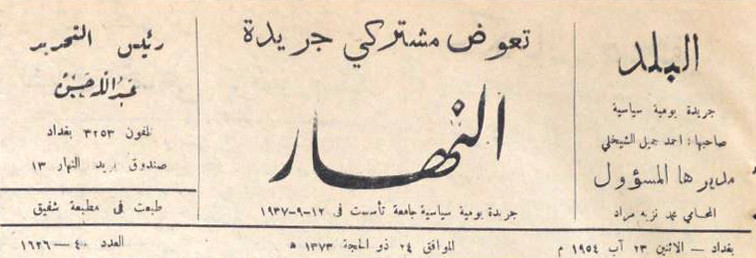 البلد
جريدة يومية سياسية
صاحبها : احمد جميل الشيخلي
مديرها المسؤول
المحامي محمد نزيه مراد
تعوض مشتركي جريدة
النهار
جريدة يومية سياسية جامعة تأسست في ١٢-٩-١٩٣٧
رئيس التحرير
عبد الله حسن
تلفون ٣٢٥٣ بغداد
صندوق بريد النهار ١٣
طبعت في مطبعة شفيق
بغداد - الاثنين ٢٣ آب ١٩٥٤ م
الموافق ٢٤ ذو الحجة ١٣٧٣ ه
العدد ٤٠-١٦٢٦